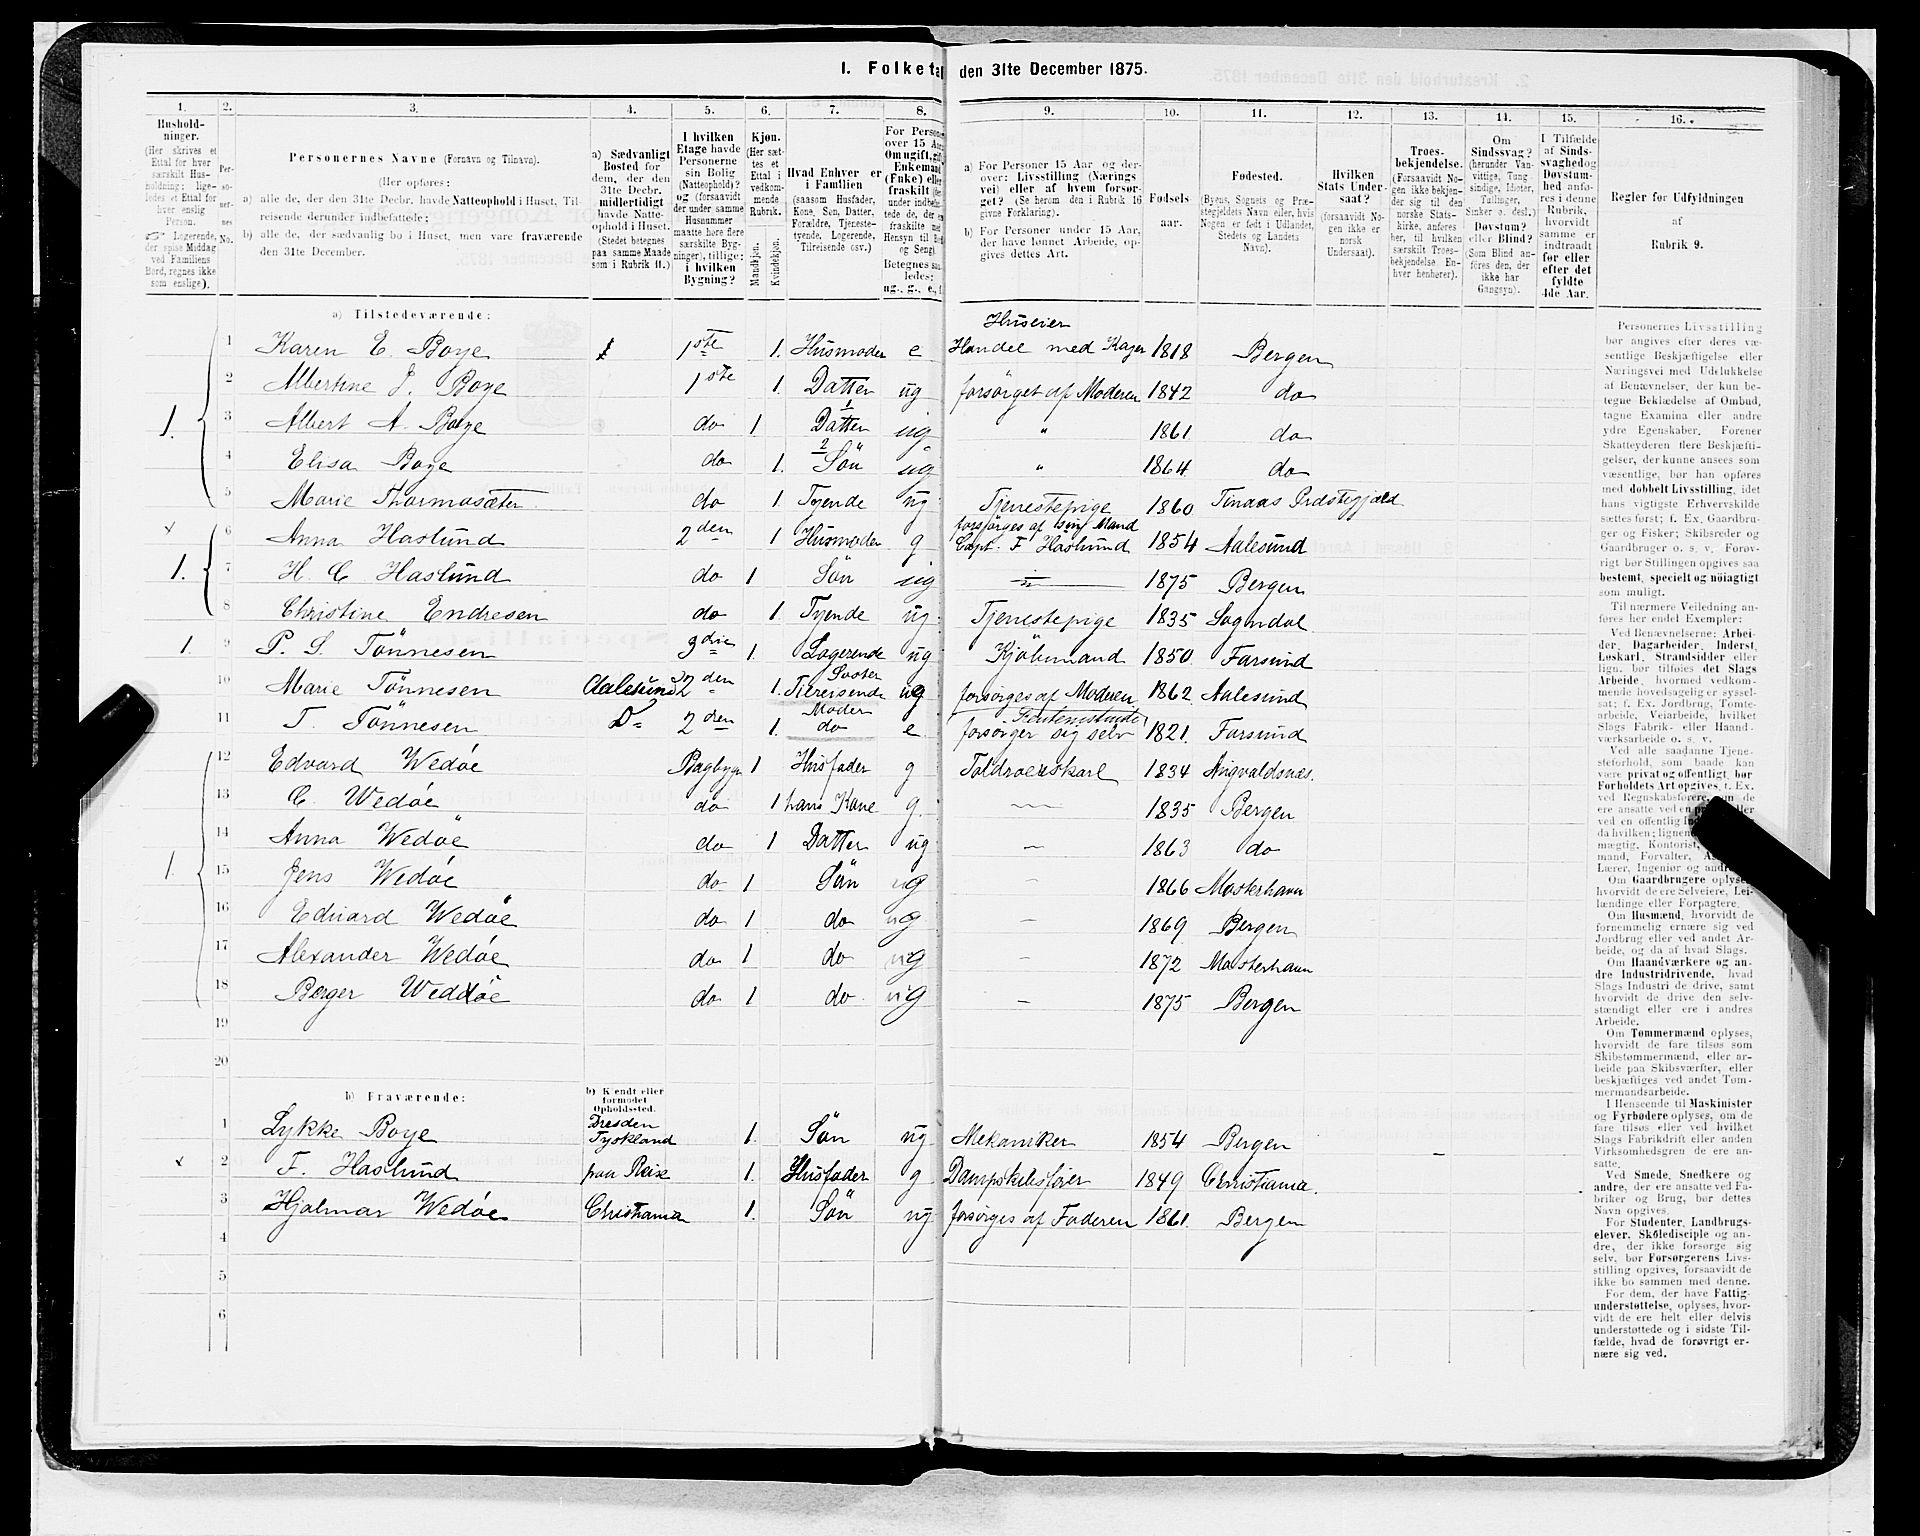 1. Folketæ den 31te December 1875.
1. 2. 3. 4. 5. 6. 7. 8. 9. 10. 11. 12. 13. 14. 15. 16.
Hushold-
ninger.
(Her skrives et
Ettal for hver
særskilt Hus-
holdning; lige-
ledes et Ettal for
hver enslig
Person.
Logerende,
der spise Middag
ved Familiens
Bord, regnes ikke
som enslige).
Per-
so-
ner-
nes
No.
Personernes Navne (Fornavn og Tilnavn).
(Her opføres:
a) alle de, der den 31te Decbr. havde Natteophold i Huset, Til-
reisende derunder indbefattede;
b) alle de, der sædvanlig bo i Huset, men vare fraværende
den 31te December.
a) Sædvanligt
Bosted for
dem, der den
31te Decbr.
midlertidigt
havde Natte-
ophold i Huset.
(Stedet betegnes
paa samme Maade
som i Rubrik 11.)
I hvilken
Etage havde
Personerne
sin Bolig
(Natteophold)?
og (forsaavidt
der under samme
Husnummer
maatte høre flere
særskilte Byg-
ninger), tillige:
i hvilken
Bygning?
Kjøn.
(Her sæt-
tes et
Ettal i
vedkom-
mende
Rubrik.
Mandkjøn.
Kvindekjøn.
Hvad Enhver er
i Familien
(saasom Husfader,
Kone, Søn, Datter,
Forældre, Tjeneste-
tyende, Logerende,
Tilreisende osv.)
For Persone
over 15 Aar
Om ugift, gift
Enkemand
(Fnke) eller
fraskilt
a) For Personer 15 Aar og der-
over: Livsstilling (Nærings
vei) eller af hvem forsør-
get? (Se herom den i Rubrik 16
givne Forklaring).
b) For Personer under 15 Aar,
der have lønnet Arbeide, op-
gives dettes Art.
Fødsels-
aar.
Fødested.
(Byens, Sognets og Præ-
stegjeldets Navn eller, hvis
Nogen er født i Udlandet,
Stedets og Landets
Navn).
Hvilken
Stats Under-
saat?
(forsaavidt No-
gen ikke er
norsk
Undersaat).
Troes-
bekjendelse.
(Forsaavidt No-
gen ikke bekjen-
der sig til den
norske Stats-
kirke, anføres
her, til hvilken
særskilt Troes-
bekjendelse En-
hver henhører).
Om
Sindssvag?
(herunder Van-
vittige, Tung-
sindige, Idioter,
Tullinger,
Sinker o. desl.)
Døvstum?
eller Blind?
(Som Blind an-
føres den, der
ikke har
Gangsyn).
I Tilfælde
af Sinds-
svaghed og
Døvstum-
hed anfø-
res i denne
Rubrik,
hvorvidt
samme er
indtraadt
før eller
efter det
fyldte
4de Aar.
Regler for Udfyldningen
af
Rubrik 9.
a) Tilstedeværende:
Huseier
1 Karen E. Boye 1ste 1. Husmoder e Handel med Kager 1818 Bergen
2 Albertine J. Boye 1ste 1. Datter ug forsørget af Moderen 1842 do
3 Albert A. Boye do 1 Datter ug " 1861 do
4 Elisa Boye do 1. Sön ug " 1864 do
5 Marie Thormosæter do 1 Tyende ug Tjenestepige 1860
forsørges af sin Mand
6 Anna Haslund 2den 1 Husmoder g Capt. F Haslund 1854 Aalesund
7 H. C Haslund do 1 Sön ug " 1875 Bergen
8 Christine Endresen do 1 Tyende ug Tjenestepige 1835 Sogndal
9 P. S. Tönnesen 3die 1. Logerende ug Kjöbmand 1850 Farsund
Søster
10 Marie Tönnesen Aalesund 2den 1. Tilreisende ug forsørges af Moderen 1862 Aalesund
Moder
11 T. Tönnesen Do 2den 1. do e forsørger sig selv 1821 Farsund
12 Edvard Wedøe Bagbygn 1 Husfader g 1834
13 C. Wedøe do 1 hans Kone g. 1835 Bergen
14 Anna Wedøe do 1 Datter ug 1863 do
15 Jens Wedøe do 1 Sön ug 1866 Mosterhavn
16 Edvard Wedøe do 1 do ug 1869 Bergen
17 Alexander Wedøe do 1 do ug 1872 Mosterhavn
18 Berger Weddøe do 1 do ug 1875 Bergen
19
20
b) Fraværende:
b) Kjendt eller
formodet
Opholdssted.
Dresden
1 Lykke Boye Tyskland 1. Sön ug Mekaniker 1854 Bergen
2 F. Haslund paa Reise 1. Husfader g Dampskibsfører 1849 Christiania.
3 Hjalmar Wedøe Christiania 1. Sön ug forsørges af Faderen 1861 Bergen
4
5
6
Personernes Livsstilling
bør angives efter deres væ-
sentlige Beskjæftigelse eller
Næringsvei med Udelukkelse
af Benævnelser, der kun be-
tegne Beklædelse af Ombud,
tagne Examina eller andre
ydre Egenskaber. Forener
Skatteyderen flere Beskjæfti-
gelser, der kunne ansees som
væsentlige, bør han opføres
med dobbelt Livsstilling, idet
hans vigtigste Erhvervskilde
sættes først; f. Ex. Gaardbru-
ger og Fisker; Skibsreder og
Gaardbruger o. s. v. Forøv-
rigt bør Stillingen opgives saa
bestemt, specielt og nöiagtigt
som muligt.
Til nærmere Veiledning an-
føres her endel Exempler:
Ved Benævnelserne: Arbei-
der, Dagarbeider, Inderst,
Løskarl, Strandsidder eller
lign. bør tilføies det Slags
Arbeide, hvormed vedkom-
mende hovedsagelig er syssel-
sat; f. Ex. Jordbrug, Tomte-
arbeide, Veiarbeide, hvilket
Slags Fabrik- eller Haand-
værksarbeide o. s. v.
Ved alle saadanne Tjene-
steforhold, som baade kan
være privat og offentligt, bør
Forholdets Art opgives, t. Ex.
Om Gaardbrugere oplyses,
hvorvidt de ere Selveiere, Lei-
lændinge eller Forpagtere.
Om Husmænd, hvorvidt de
fornemmelig ernære sig ved
Jordbrug eller ved andet Ar-
beide, og da af hvad Slags.
Om Haandværkere og an-
dre Industridrivende, hvad
Slags Industri de drive, samt
hvorvidt de drive den selv-
stændigt eller ere i andres
Arbeide.
Om Tømmermænd oplyses,
hvorvidt de fare tilsøs som
Skibstømmermænd, eller ar-
beide paa Skibsværfter, eller
beskjæftiges ved andet Tøm-
mermandsarbeide.
I Henseende til Maskinister
og Fyrbødere oplyses, om de
fare tilsøs eller ved hvilket
Slags Fabrikdrift eller anden
Virksomhedsgren de ere an-
satte.
Ved Smede, Snedkere og
andre, der ere ansatte ved Fa-
briker og Brug, bør dettes
Navn opgives.
For Studenter, Landbrugs-
elever, Skoledisciple og an-
dre, der ikke forsørge sig
selv, bør Forsørgerens Livs-
stilling opgives, forsaavidt de
ikke bo sammen med denne.
For dem, der have Fattig-
understøttelse, oplyses, hvor-
vidt de ere helt eller delvis
understøttede og i sidste Til-
fælde, hvad de forøvrigt er-
nære sig ved.